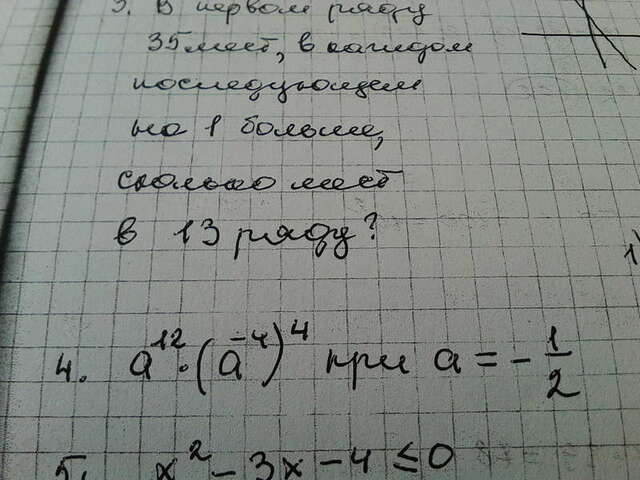 3. В первом ряду
35 мест, в каждом
последующем
на 1 больше,
сколько мест
в 13 ряду?
4. a¹²·(a⁻⁴)⁴ при a = -1/2
5. x² - 3x - 4 ≤ 0